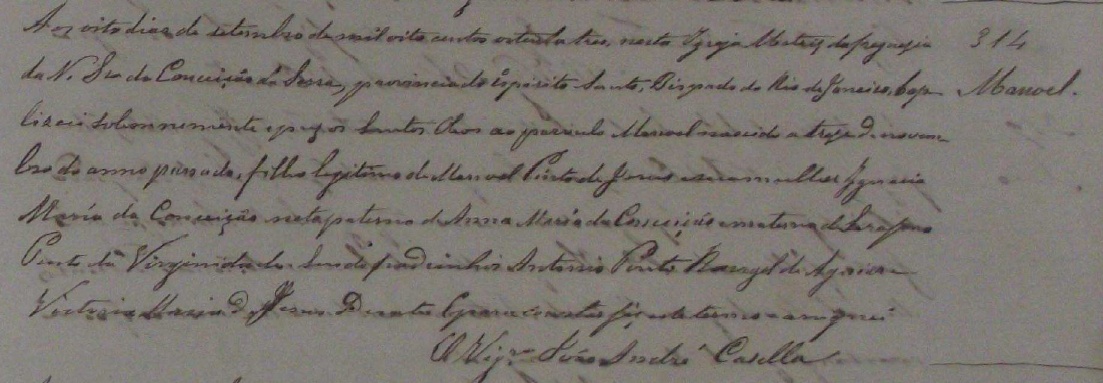 Aos oito dias de setembro de mil oito centos oitenta tres, nesta Igreja Matriz da freguesia 314
da N. Sra da Conceição da Serra, provincia do Espirito Santo, Bispado do Rio de Janeiro, bap- Manoel.
tizei solemnemente e puz os Santos Oleos ao parvulo Manoel nascido a treze de novem-
bro do anno passado, filho legitimo de Manoel Pinto de Jesus e sua mulher Ignacia
Maria da Conceição neto paterno de Anna Maria da Conceição e materno de
Pinto da padrinhos Antonio Pinto Rangel de
Victoria Maria de Jesus E para constar fiz este termo e assignei
O Vigro João André Casella